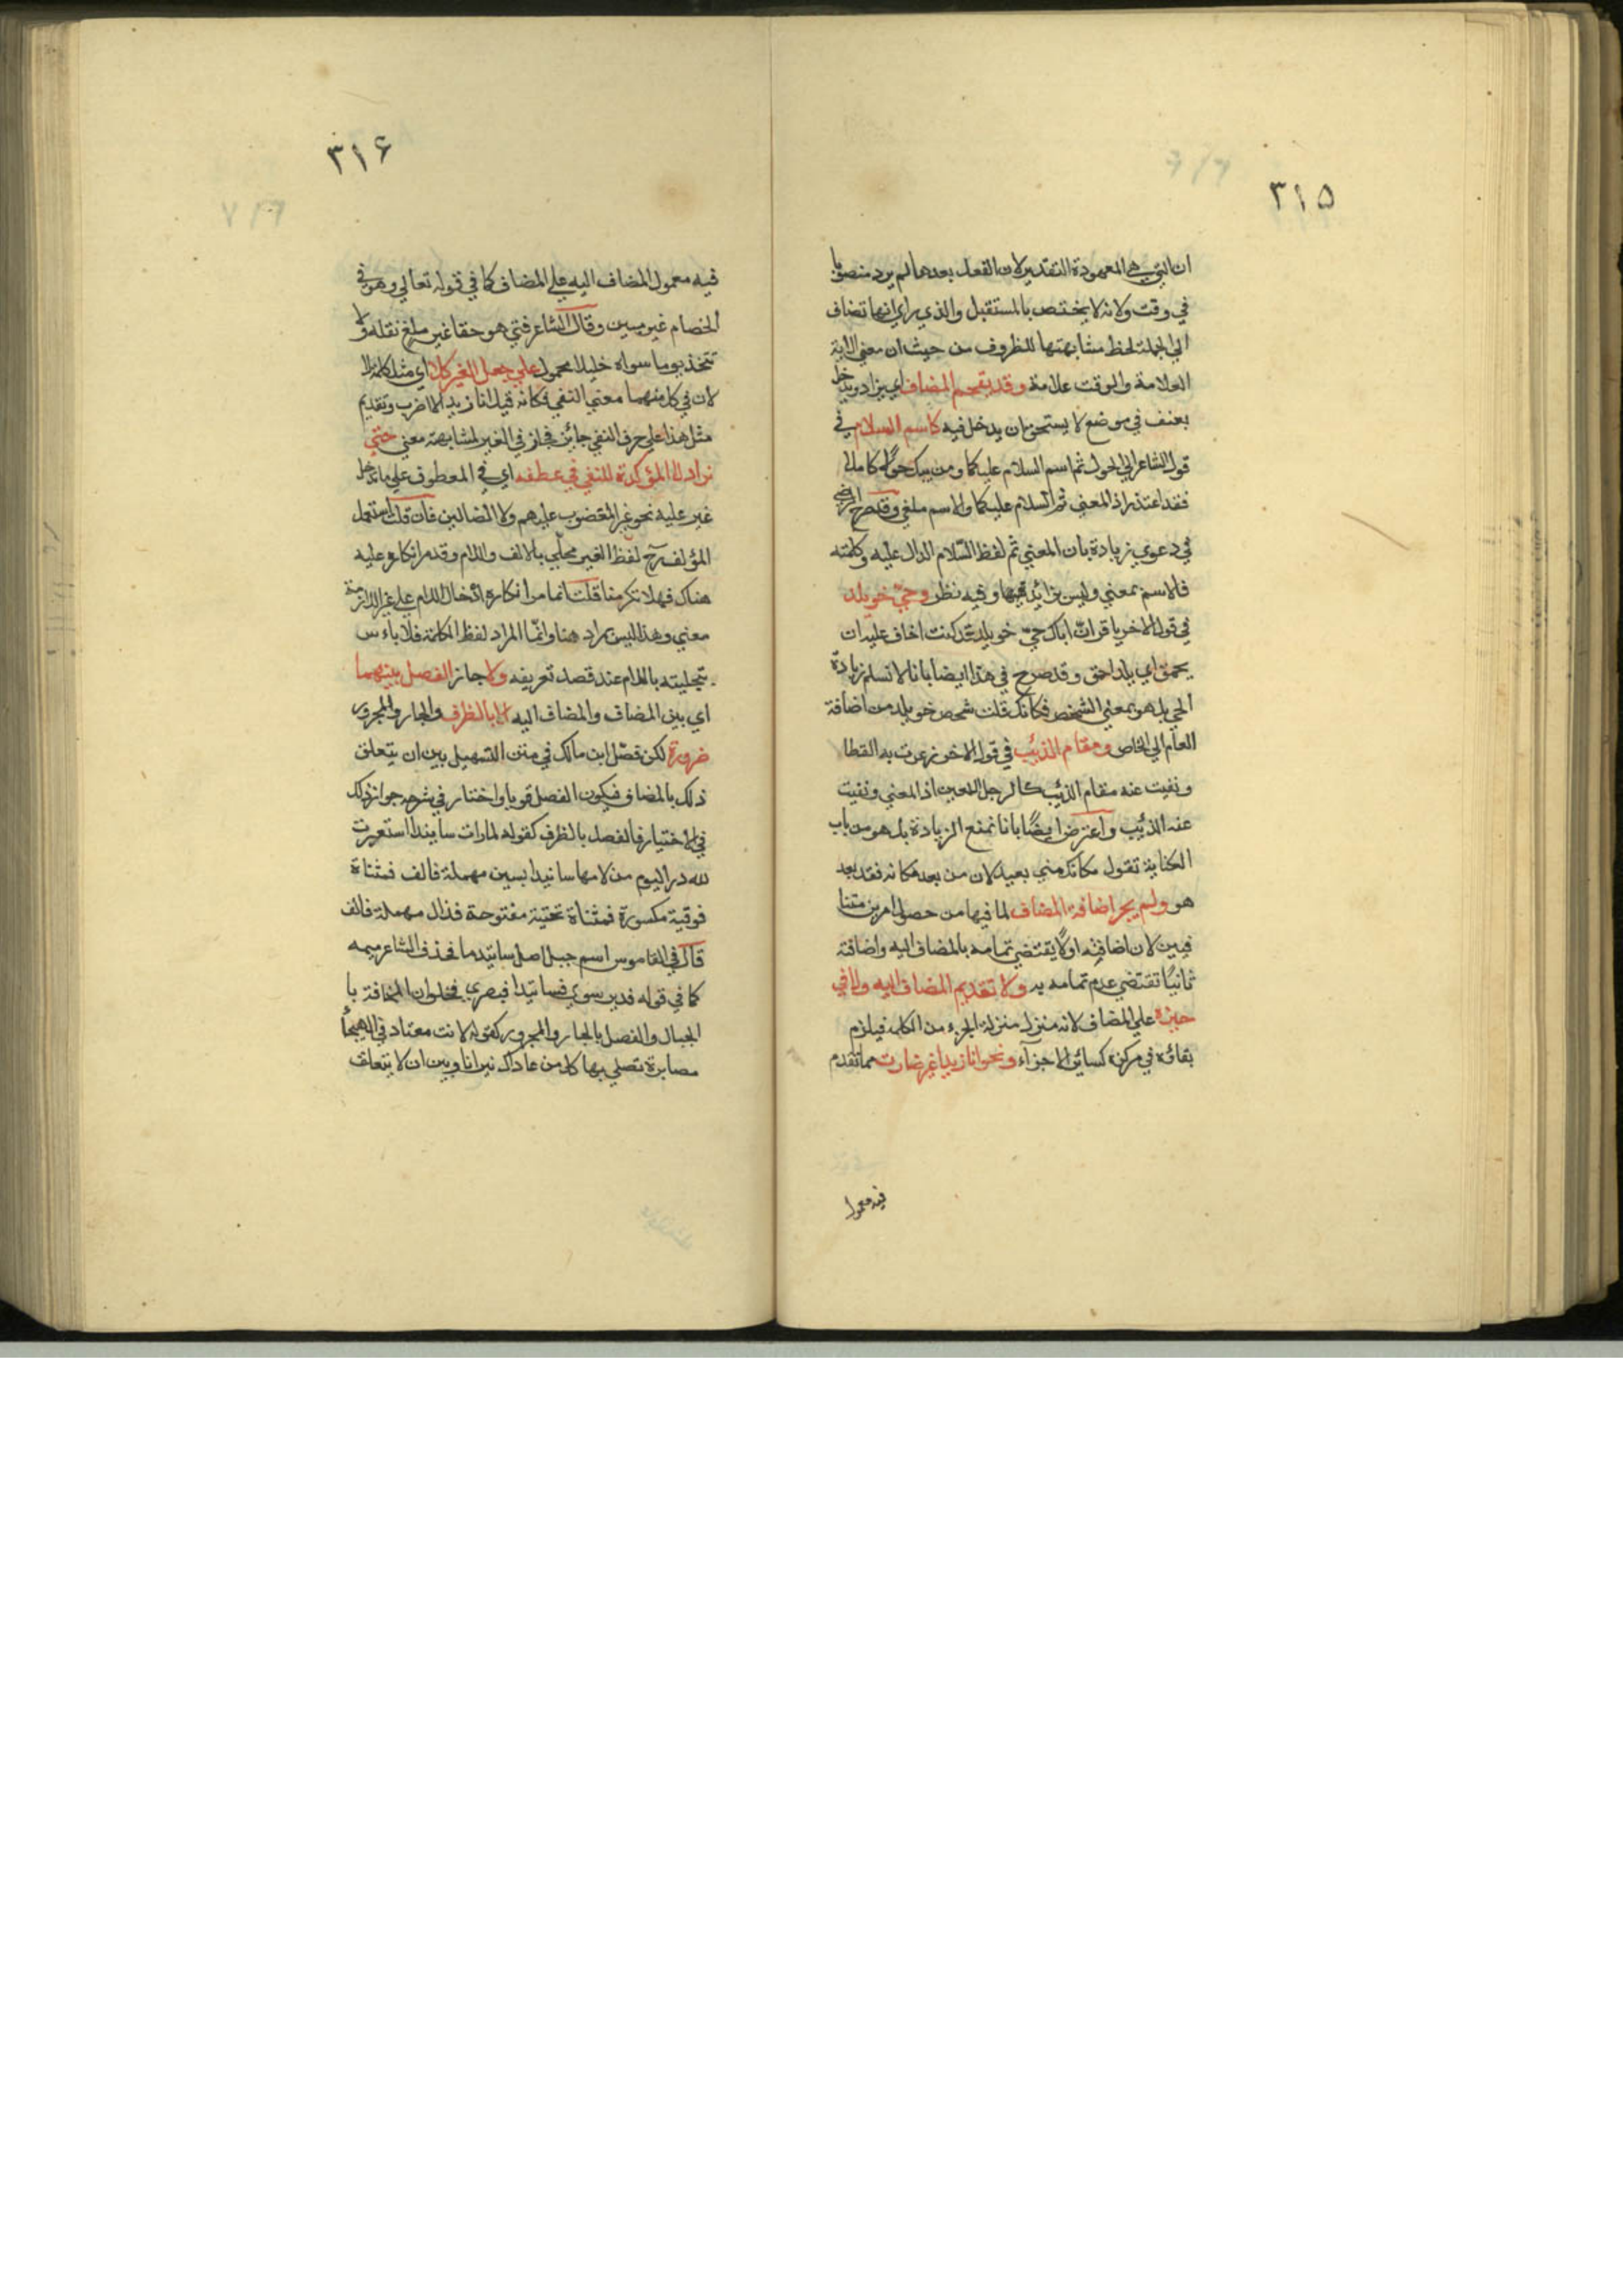 ٣١٥
ان التي هي المعهودة التقدير لان الفعل بعدها لم يرد منصوبا
في وقت ولانه لا يختص بالمستقبل والذي راي انها تضاف
الي الجملة لحظ مشابهتها للظروف من حيث ان معني الاية
العلامة والوقت علامة وقد يقحم المضاف اي يزاد ويدخل
بعنف في موضع لا يستحق ان يدخل فيه كاسم السلام في
قول الشاعر الي الحول ثم اسم السلام عليكما ومن يبك حولا كاملا
فقد اعتذر اذ المعني ثم السلام عليكما والاسم ملغي وقد
في دعوي زيادة بان المعني ثم لفظ السلام الدال عليه وكلمته
فالاسم بمعني وليس بزائد وفيه نظر وحيّ خويلد
في قول الاخر يا قر انّ اباك حيّ خويلد قد كنت اخاف عليه ان
يحمق اي يلد احمق وقد صرح في هذا ايضا بانا لا نسلم زيادة
الحي بل هو بمعني الشخص فكانك قلت شخص خويلد من اضافة
العام الي الخاص ومقام الذئب في قول الاخر ذعرت به القطا
ونفيت عنه مقام الذئب كالرجل اللعين اذ المعني ونفيت
عنه الذئب واعترض ايضًا بانا نمنع الزيادة بل هو من باب
الكناية تقول مكانك مني بعيد لان من بعد مكانه فقد بعد
هو ولم يجز اضافة المضاف لما فيها من حصول امرين متنا
فيين لان اضافته اولًا يقتضي تمامه بالمضاف اليه واضافته
ثانيًا تقتضي عدم تمامه به ولا تقديم المضاف اليه ولا في
حيزه علي المضاف لانه منزل منزلة الجزء من الكلمة فيلزم
بقاؤه في مركزه كسائر الاجزآء ونحو انا زيدا غير ضارب مما تقدم
فيه معمول
٣١۶
فيه معمول المضاف اليه علي المضاف كما في قوله تعالي وهو في
الخصام غير مبين وقال الشاعر فتي هو حقا غير ملغ نقله ولا
تتخذ يوما سواه خليلا محمول علي جعل الغير كلا اي مثل كلمة لا
لان في كل منهما معني النفي فكانه قيل انا زيدا لا اضرب وتقديم
مثل هذا علي حرف النفي جائز فجاز في الغير لمشابهته معني حتي
زاد لا المؤكدة للنفي في عطفه اي في المعطوف علي ما تدخل
غير عليه نحو غير المغضوب عليهم ولا الضالين فان قلت استعمل
المؤلف رح لفظ الغير محلّي بالالف واللام وقد مر انكاره عليه
هناك فهلا نكر هنا قلت انما مر انكاره ادخال اللام علي غير اللازمة
معني وهذا ليس بمراد هنا وانّما المراد لفظ الكلمة فلا باءس
بتحليته باللام عند قصد تعريفه ولا جاز الفصل بينهما
اي بين المضاف والمضاف اليه الا بالظرف والجار والمجرور
ضرورة لكن فصّل ابن مالك في متن التسهيل بين ان يتعلق
ذلك بالمضاف فيكون الفصل قويا واختار في شرحه جواز ذلك
في الاختيار فالفصل بالظرف كقوله لما رات ساتيدا استعبرت
لله در اليوم من لامها ساتيدا بسين مهملة فالف فمثناة
فوقية مكسورة فمثناة تحتية مفتوحة فدال مهملة فالف
قال في القاموس اسم جبل اصل ساتيد ما فحذف الشاعر ميمه
كما في قوله فدير سوي فساتيدا فبصري فحلوان المخافة با
لجبال والفصل بالجار والمجرور كقوله لانت معتاد في الهيجأ
مصابرة تصلي بها كل من عاداك نيرانا وبين ان لا يتعلق